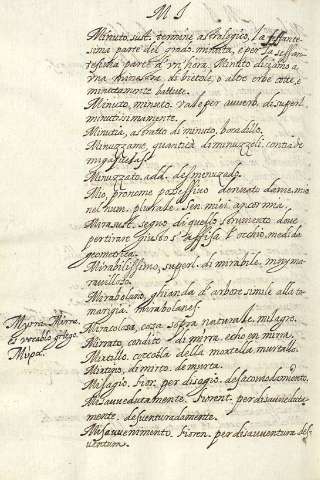 M I
Minuto, sust. termine astrologico, la sessante-
sima parte del grado. minuta, e per la sessan-
tesima parte d'un'hora. Minuto diciamo a
una minestra di bietole, o altre erbe cotte, e
minutamente battute.
Minuto, minuto, vale per avverb. di superl.
minutissimamente.
Minutia, astratto di minuto,
Minuzzame, quantità di minuzzoli,
Minuzzato, add. da
Mio, pronome possessivo derivato da me, mio
nel num. plurale, miei ancor mia.
Mira sust. segno di quello strumento, dove
s'affisa l'occhio,
geometrica.
Mirabilissimo, superl. di mirabile.
raviglioso.
Mirabolano, ghianda d'arbore simile alla ta-
marigia. mirabolanes.
Miracolosa, cosa sopra naturale, milagro.
Mirrato, condito di mirra, echo en mirra.
Mirtillo, coccola della mortella murtallo.
Mirtino, di mirto. de murta.
Misagio, fior. per disagio.
Misavvedutamente, fiorent. per disavveduta-
mente. desventuradamente.
Misavvenimento, fioren. per disavventura des-
ventura.
Myrra. Mirra.
È vocablo griego.